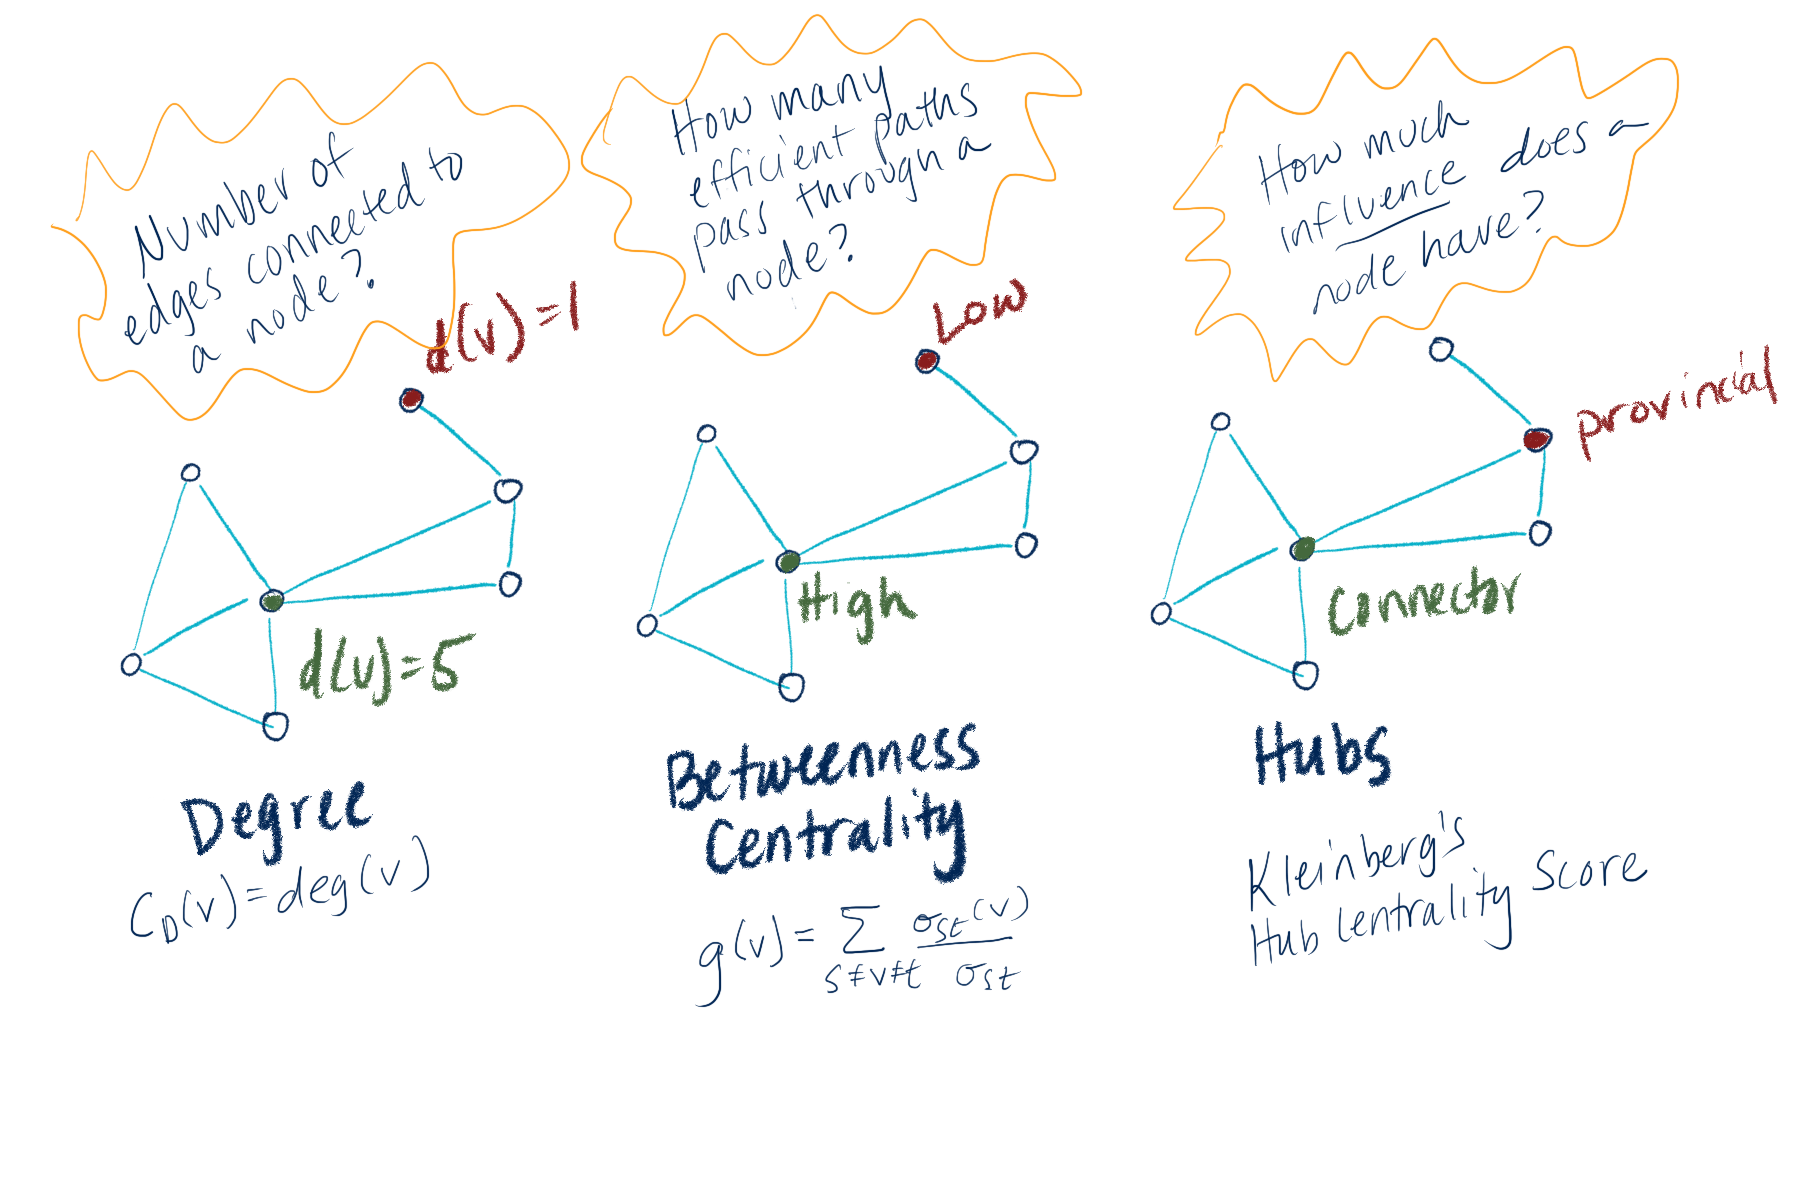 Number of
edges connected to
a node?
d(v)=1
d(v)=5
Degree
C_D(v)=deg(v)
How many
efficient paths
pass through a
node?
Low
High
Betweenness
Centrality
g(v)= ∑ σst(v)
s≠v≠t σst
How much
influence does a
node have?
provincial
Connector
Hubs
Kleinberg's
Hub Centrality Score